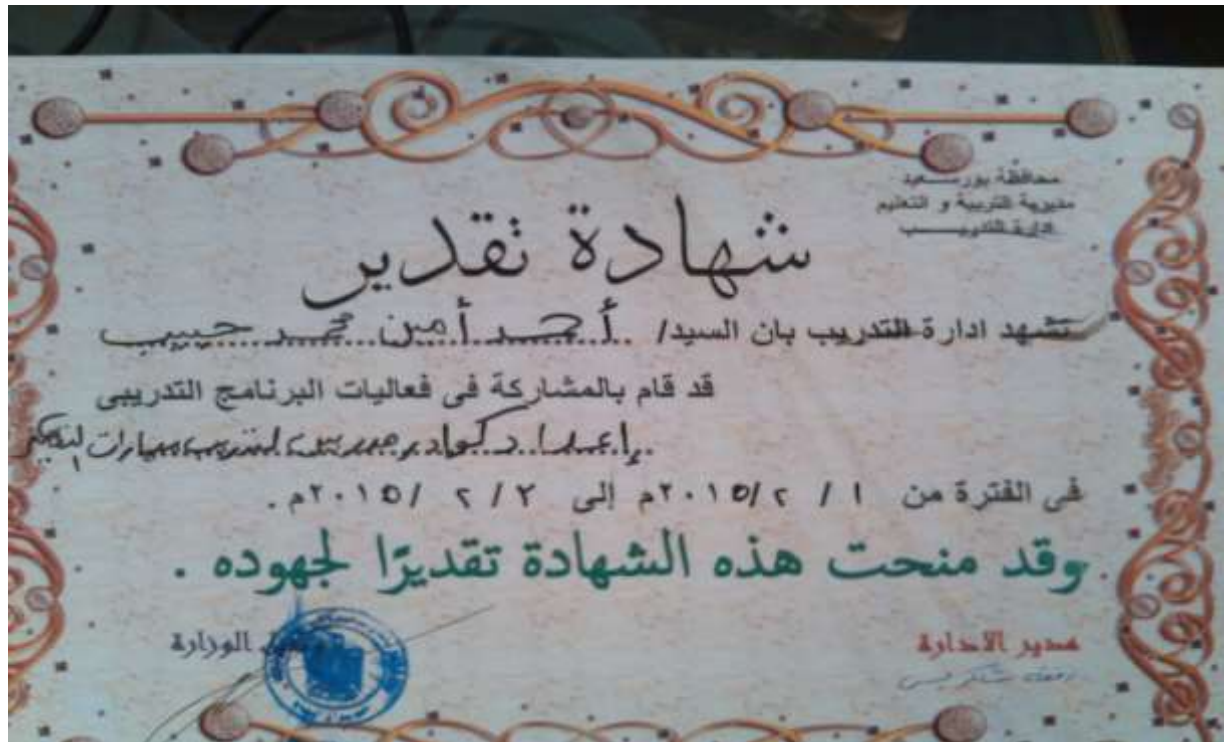 محافظة بورسعيد
مديرية التربية و التعليم
إدارة التدريب
شهادة تقدير
تشهد ادارة التدريب بان السيد/ أحمد أمين محمد حبيب
قد قام بالمشاركة فى فعاليات البرنامج التدريبى
إعداد كوادر لتدريب مهارات
فى الفترة من ١ / ٢ /٢٠١٥م إلى ٢ / ٢ /٢٠١٥م .
وقد منحت هذه الشهادة تقديرًا لجهوده .
مدير الادارة
الوزارة